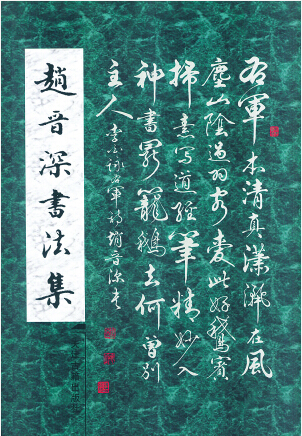 趙晋深書法集
右軍本清真瀟灑在風
塵山陰過羽客愛此好鵝賓
掃素寫道經筆精妙入
神書罷籠鵝去何曾別
主人 李白詠右軍詩 趙晋深書